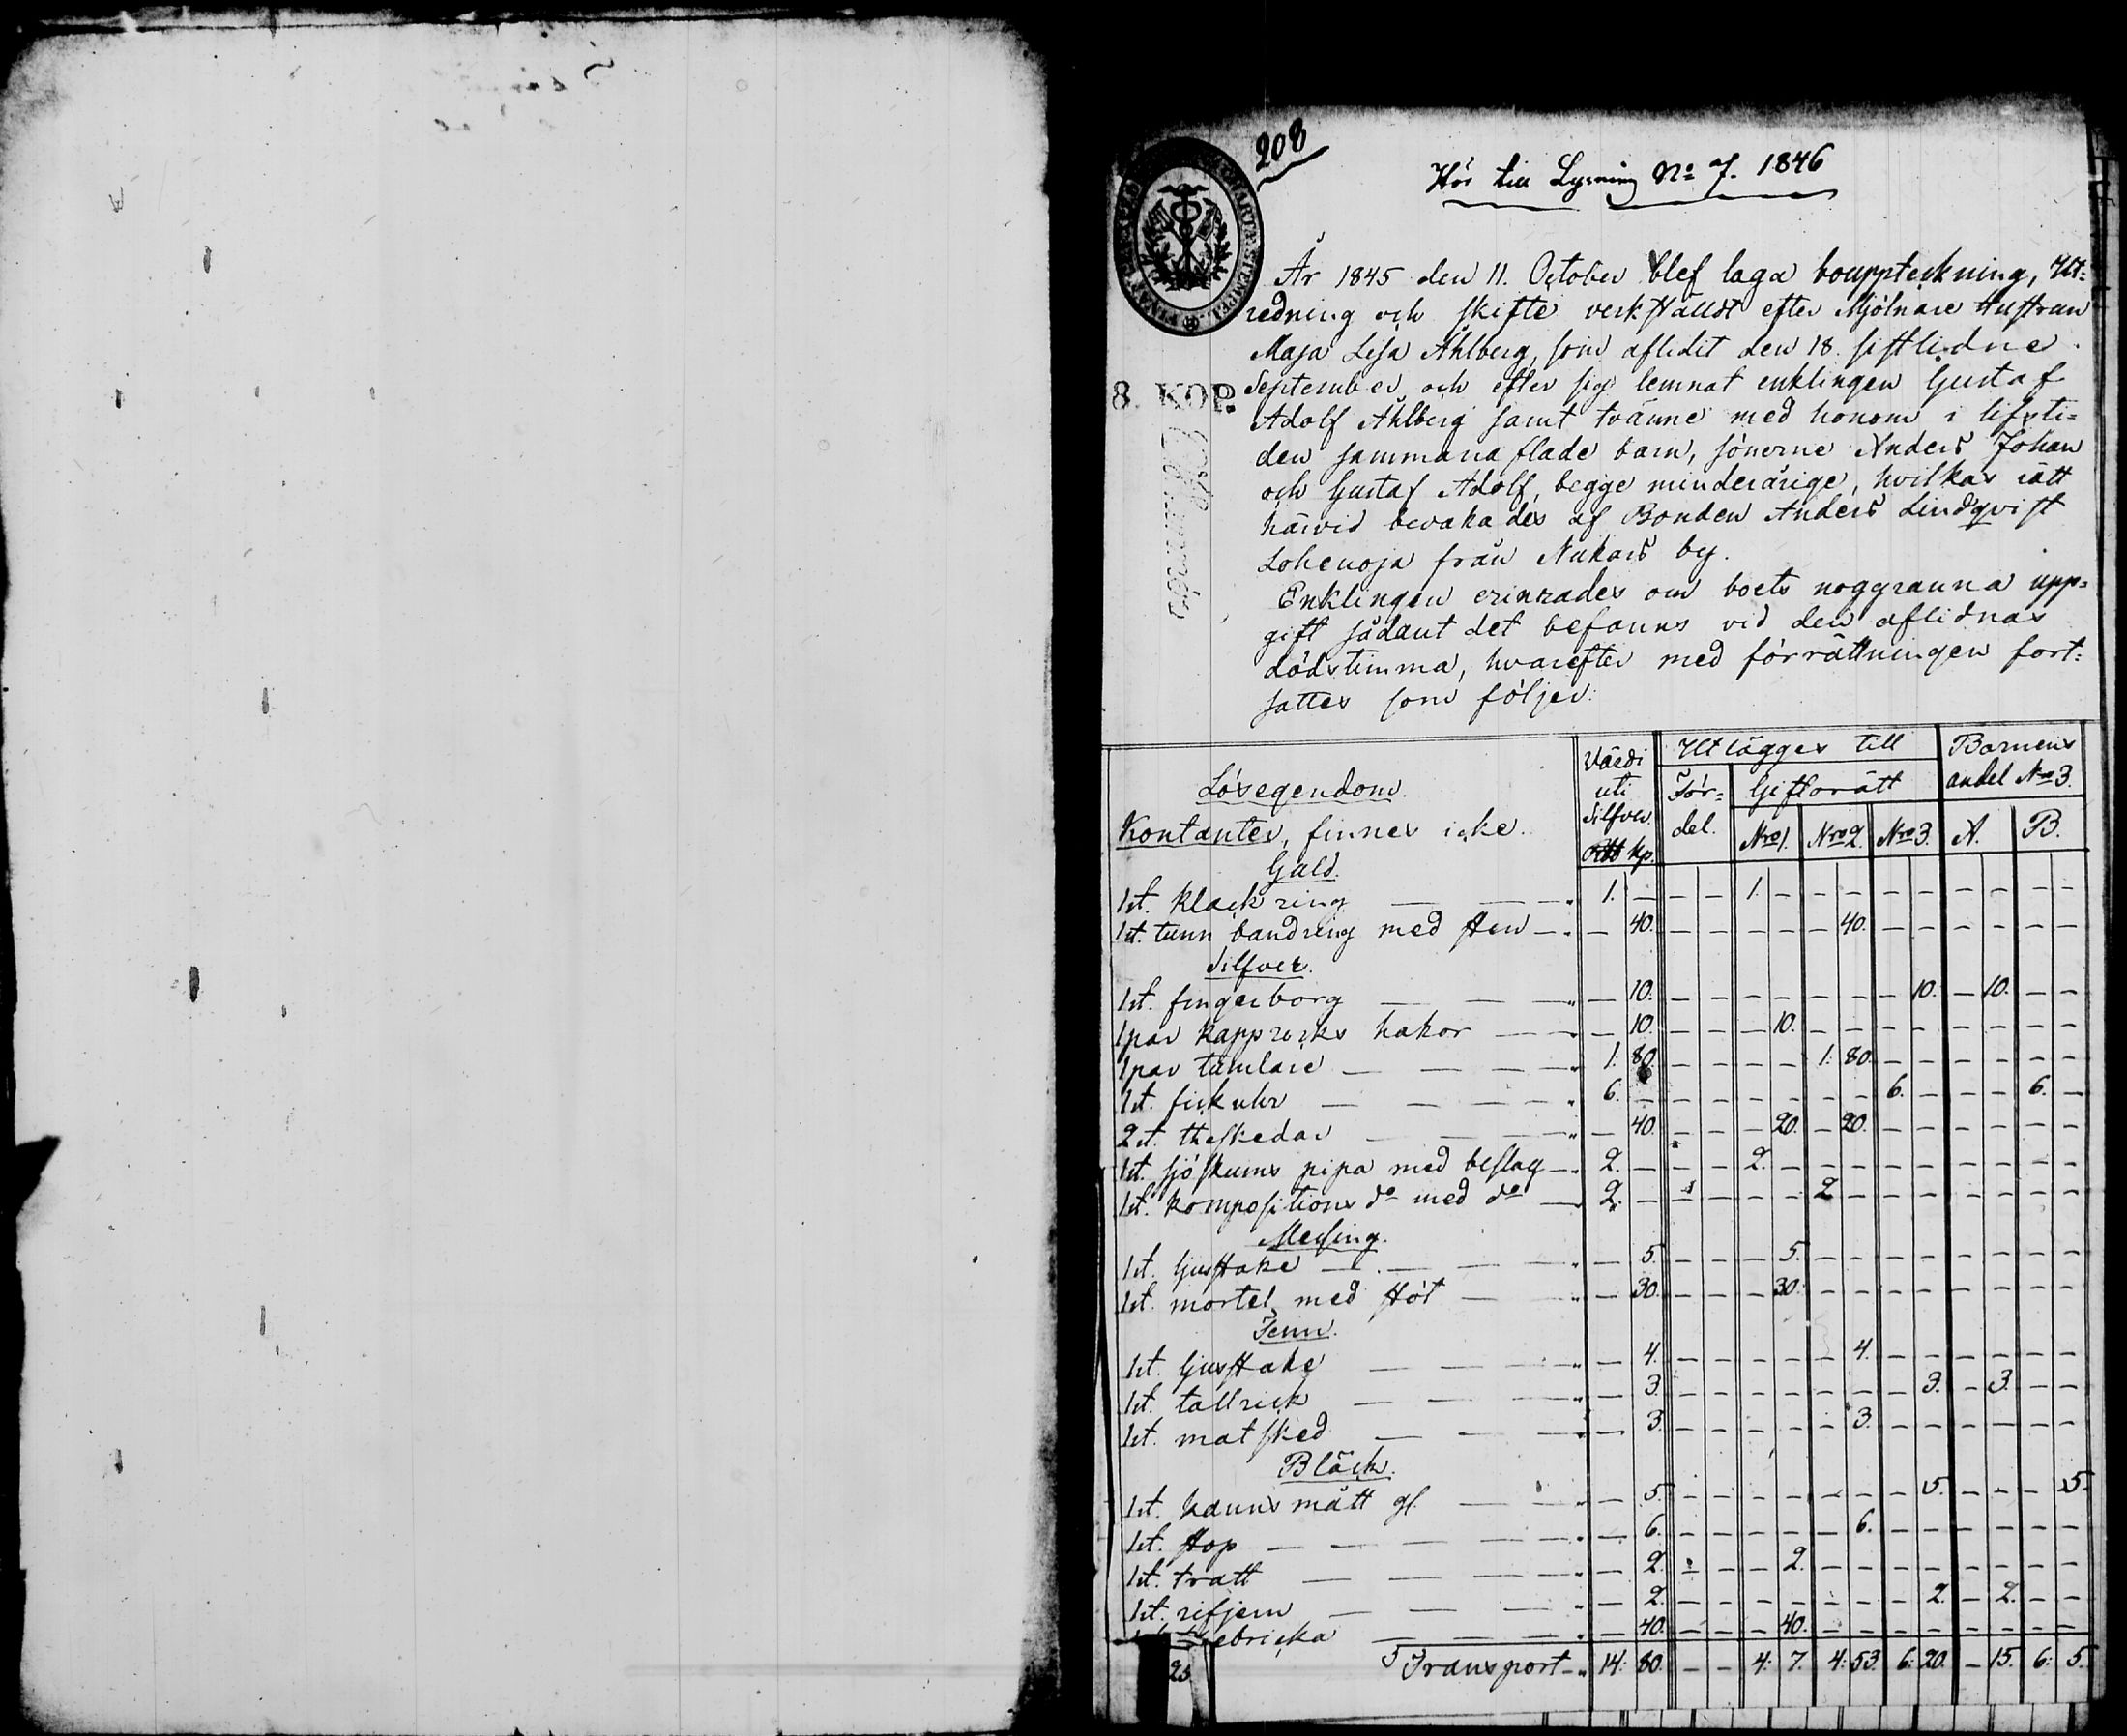 208
Hör till Lysning No 7. 1846
År 1845 den 11. October blef laga bouppteckning, Ut=
redning och skifte verkställdt efter Mjölnare Hustrun
Maja Lisa Åhlberg, som aflidit den 18. sistlidne
September och efter sig lemnat enklingen Gustaf
8. KOP.
Adolf Åhlberg samt tvänne med honom i lifsti=
den sammanaflade barn, sönerne Anders Johan
och Gustaf Adolf, begge minderårige, hvilkas rätt
härvid bevakades af Bonden Anders Lindqvist
Lohenoja från Nukars by.
Enklingen erinrades om boets noggranna upp=
gift sådant det befanns vid den aflidnas
dödstimma, hvarefter med förrättningen fort=
sattes som följer:
Lösegendom. Värdi uti Silfver. Kp. Utlägges till Fördel. Giftorätt Nro 1. Nro 2. Nro 3. Barnens andel Nro 3. A. B.
Kontanter, finnes icke.
Guld.
1 st. klackring — 1. — — — 1. — — — — — — — — —
1 st. tunn bandring med sten — — 40. — — — — — 40. — — — — — —
Silfver.
1 st. fingerborg — — 10. — — — — — — — 10. — 10. — —
1 par kapprocks hakor — — 10. — — — 10. — — — — — — — —
1 par tumlare — 1. 80. — — — — 1. 80. — — — — — —
1 st. fickuhr — 6. — — — — — — — 6. — — — 6. —
2 st. theskedar — — 40. — — — 20. — 20. — — — — — —
1 st. sjöskums pipa med beslag — 2. — — — 2. — — — — — — — — —
1 st. kompositions do med do — 2. — — — — — 2 — — — — — — —
Messing.
1 st. ljusstake — — 5. — — — 5. — — — — — — — —
1 st. mortel med stöt — — 30. — — — 30. — — — — — — — —
Tenn.
1 st. ljusstake — — 4. — — — — — 4. — — — — — —
1 st. tallrick — — 3. — — — — — — — 3. — 3. — —
1 st. matsked — — 3. — — — — — 3. — — — — — —
Bläck.
1 st. kanns mått gl. — — 5. — — — — — — — 5. — — — 5.
1 st. stop — — 6. — — — — — 6. — — — — — —
1 st. tratt — — 2. — — — 2. — — — — — — — —
1 st. rifjern — — 2. — — — — — — — 2. — 2. — —
ebricka — — 40. — — — 40. — — — — — — — —
Transport — 14. 80. — — 4. 7. 4. 53. 6. 20. — 15. 6. 5.